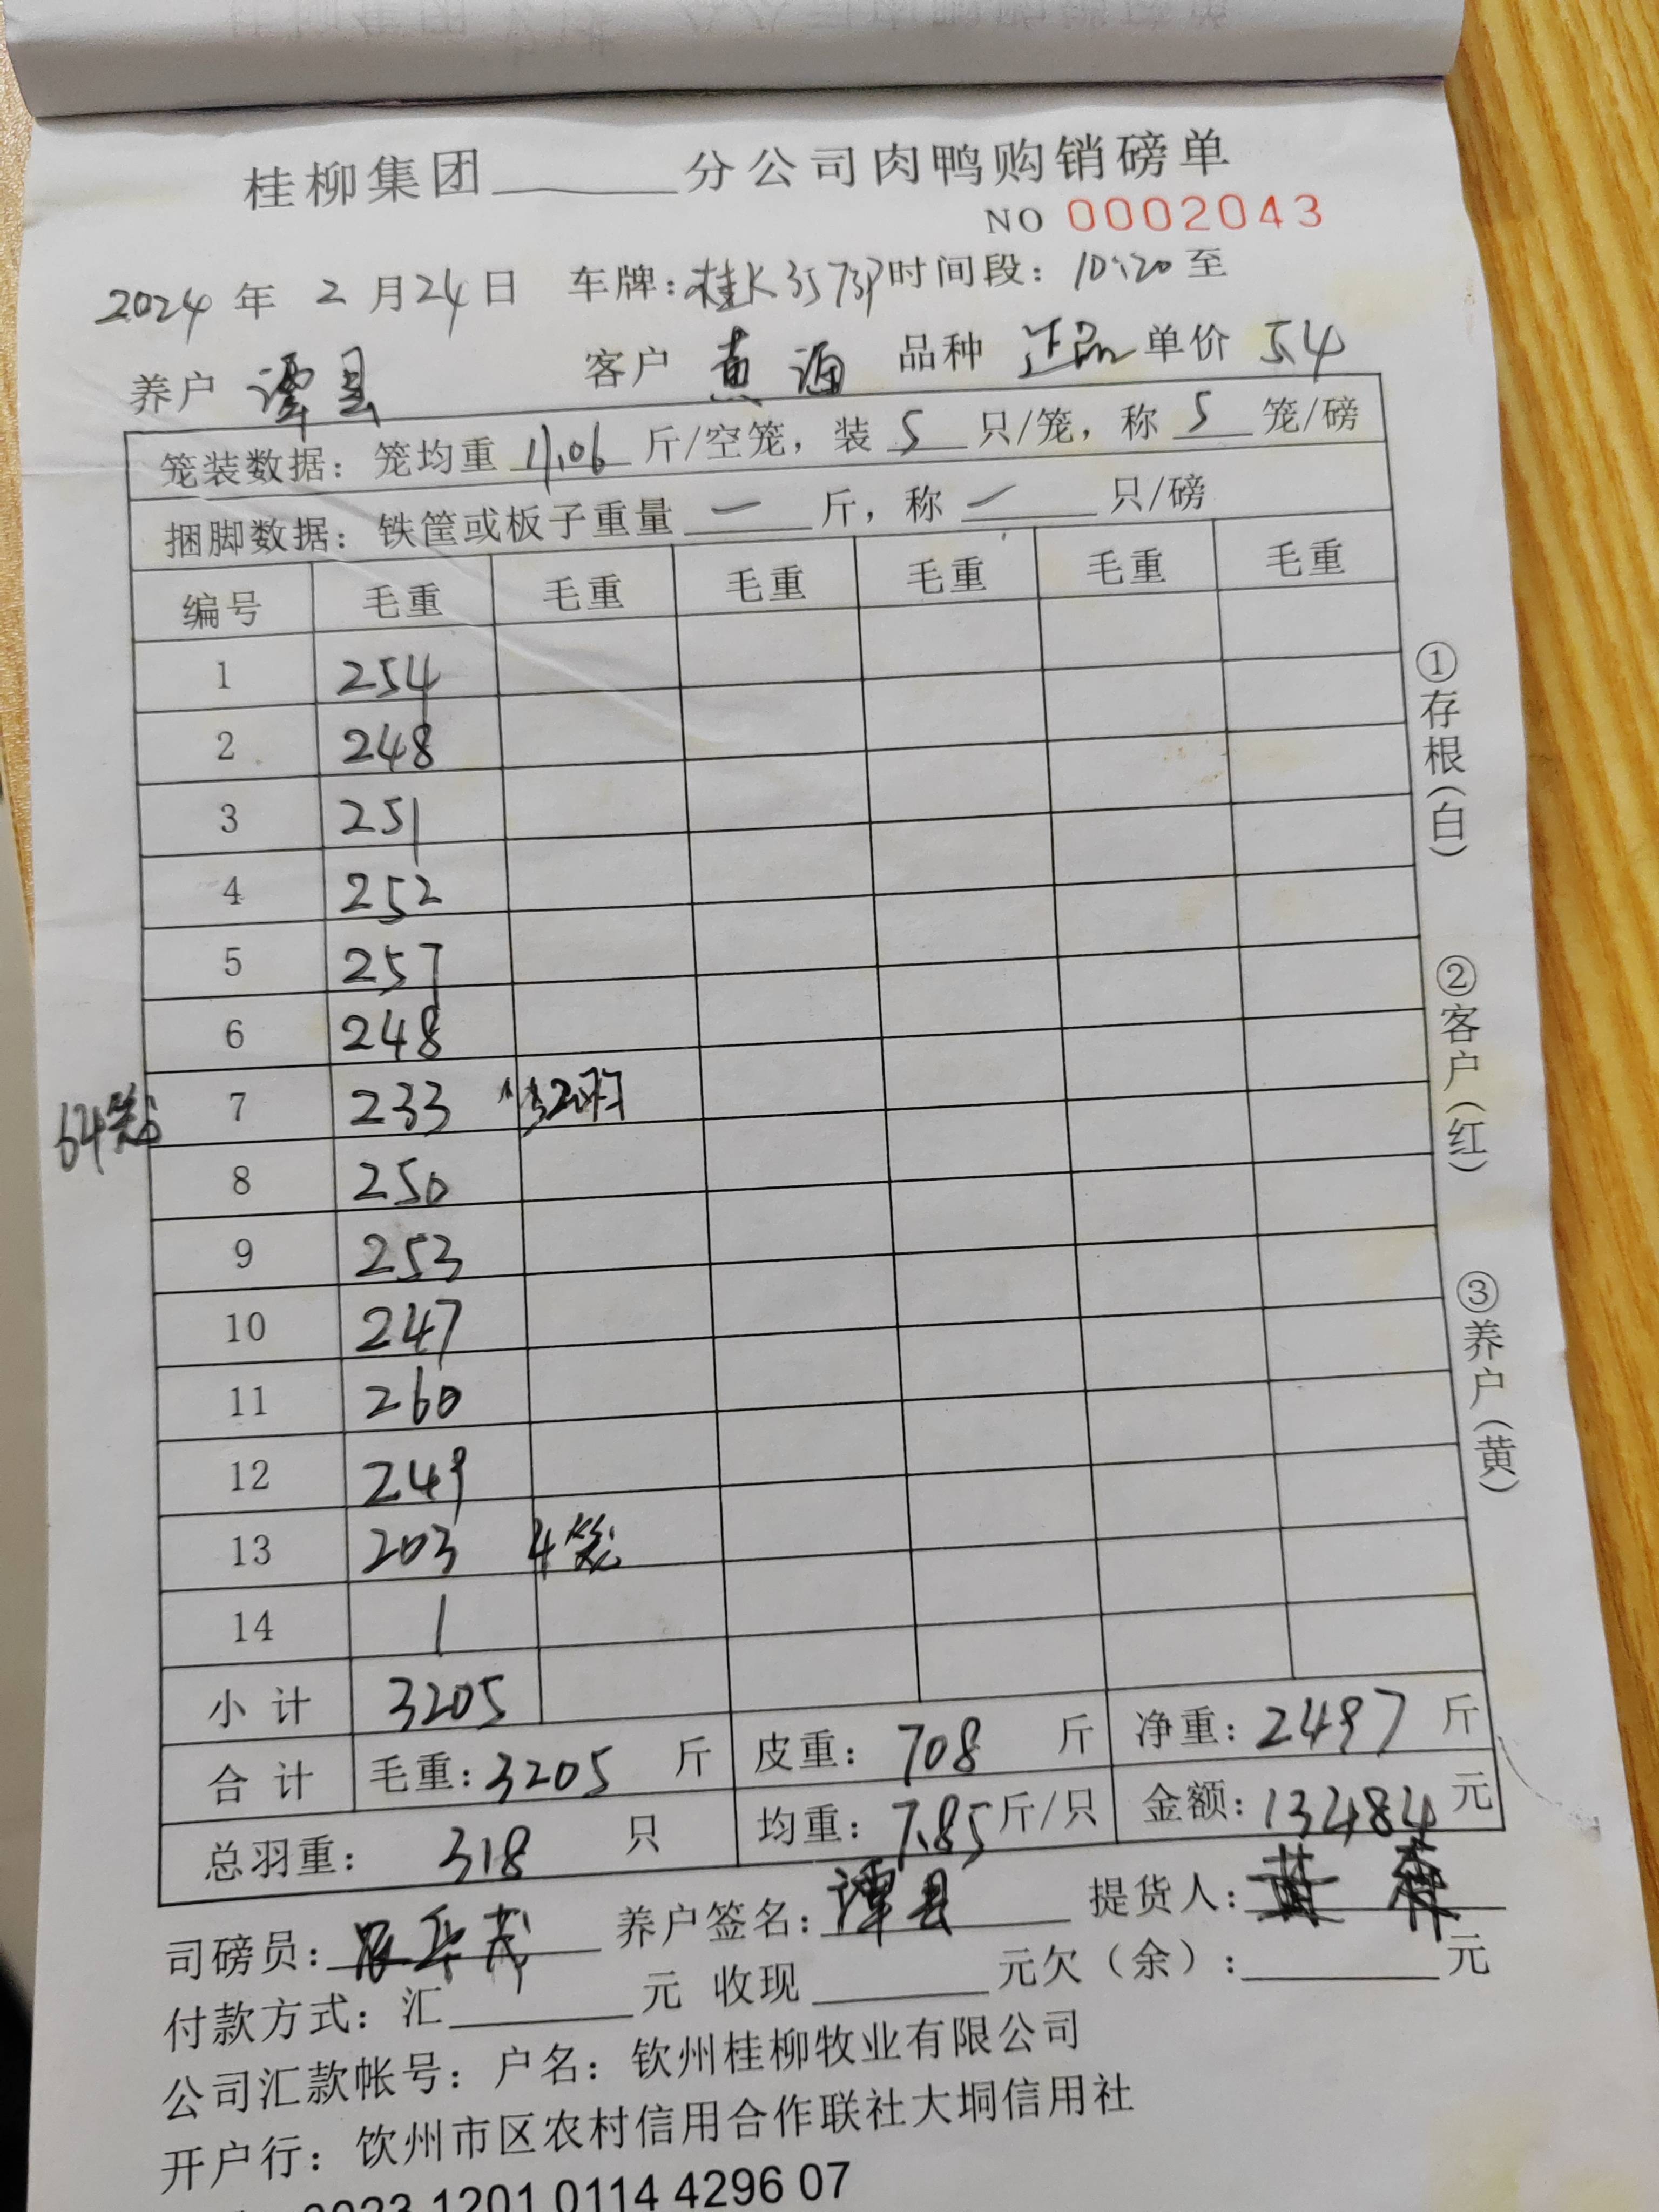 桂柳集团______分公司肉鸭购销磅单
NO 0002043
2024年 2月24日 车牌:桂K3573P时间段:10:20至
养户 谭昙 客户 黄海 品种 正品 单价 5.4
笼装数据:笼均重 11.06 斤/空笼,装 5 只/笼,称 5 笼/磅
捆脚数据:铁筐或板子重量 一 斤,称 一 只/磅
编号 毛重 毛重 毛重 毛重 毛重 毛重
1 254
2 248
3 251
4 252
5 257
6 248
64笼 7 233
8 250
9 253
10 247
11 260
12 249
13 203 4笼
14 /
小计 3205
合计 毛重:3205 斤 皮重:708 斤 净重:2497 斤
总羽重: 318 只 均重:7.85斤/只 金额:13484元
司磅员: 养户签名:谭昙 提货人:黄
付款方式:汇______元 收现______元欠(余):______元
公司汇款帐号:户名:钦州桂柳牧业有限公司
开户行:钦州市区农村信用合作联社大垌信用社
1201 0114 4296 07
①存根(白)
②客户(红)
③养户(黄)